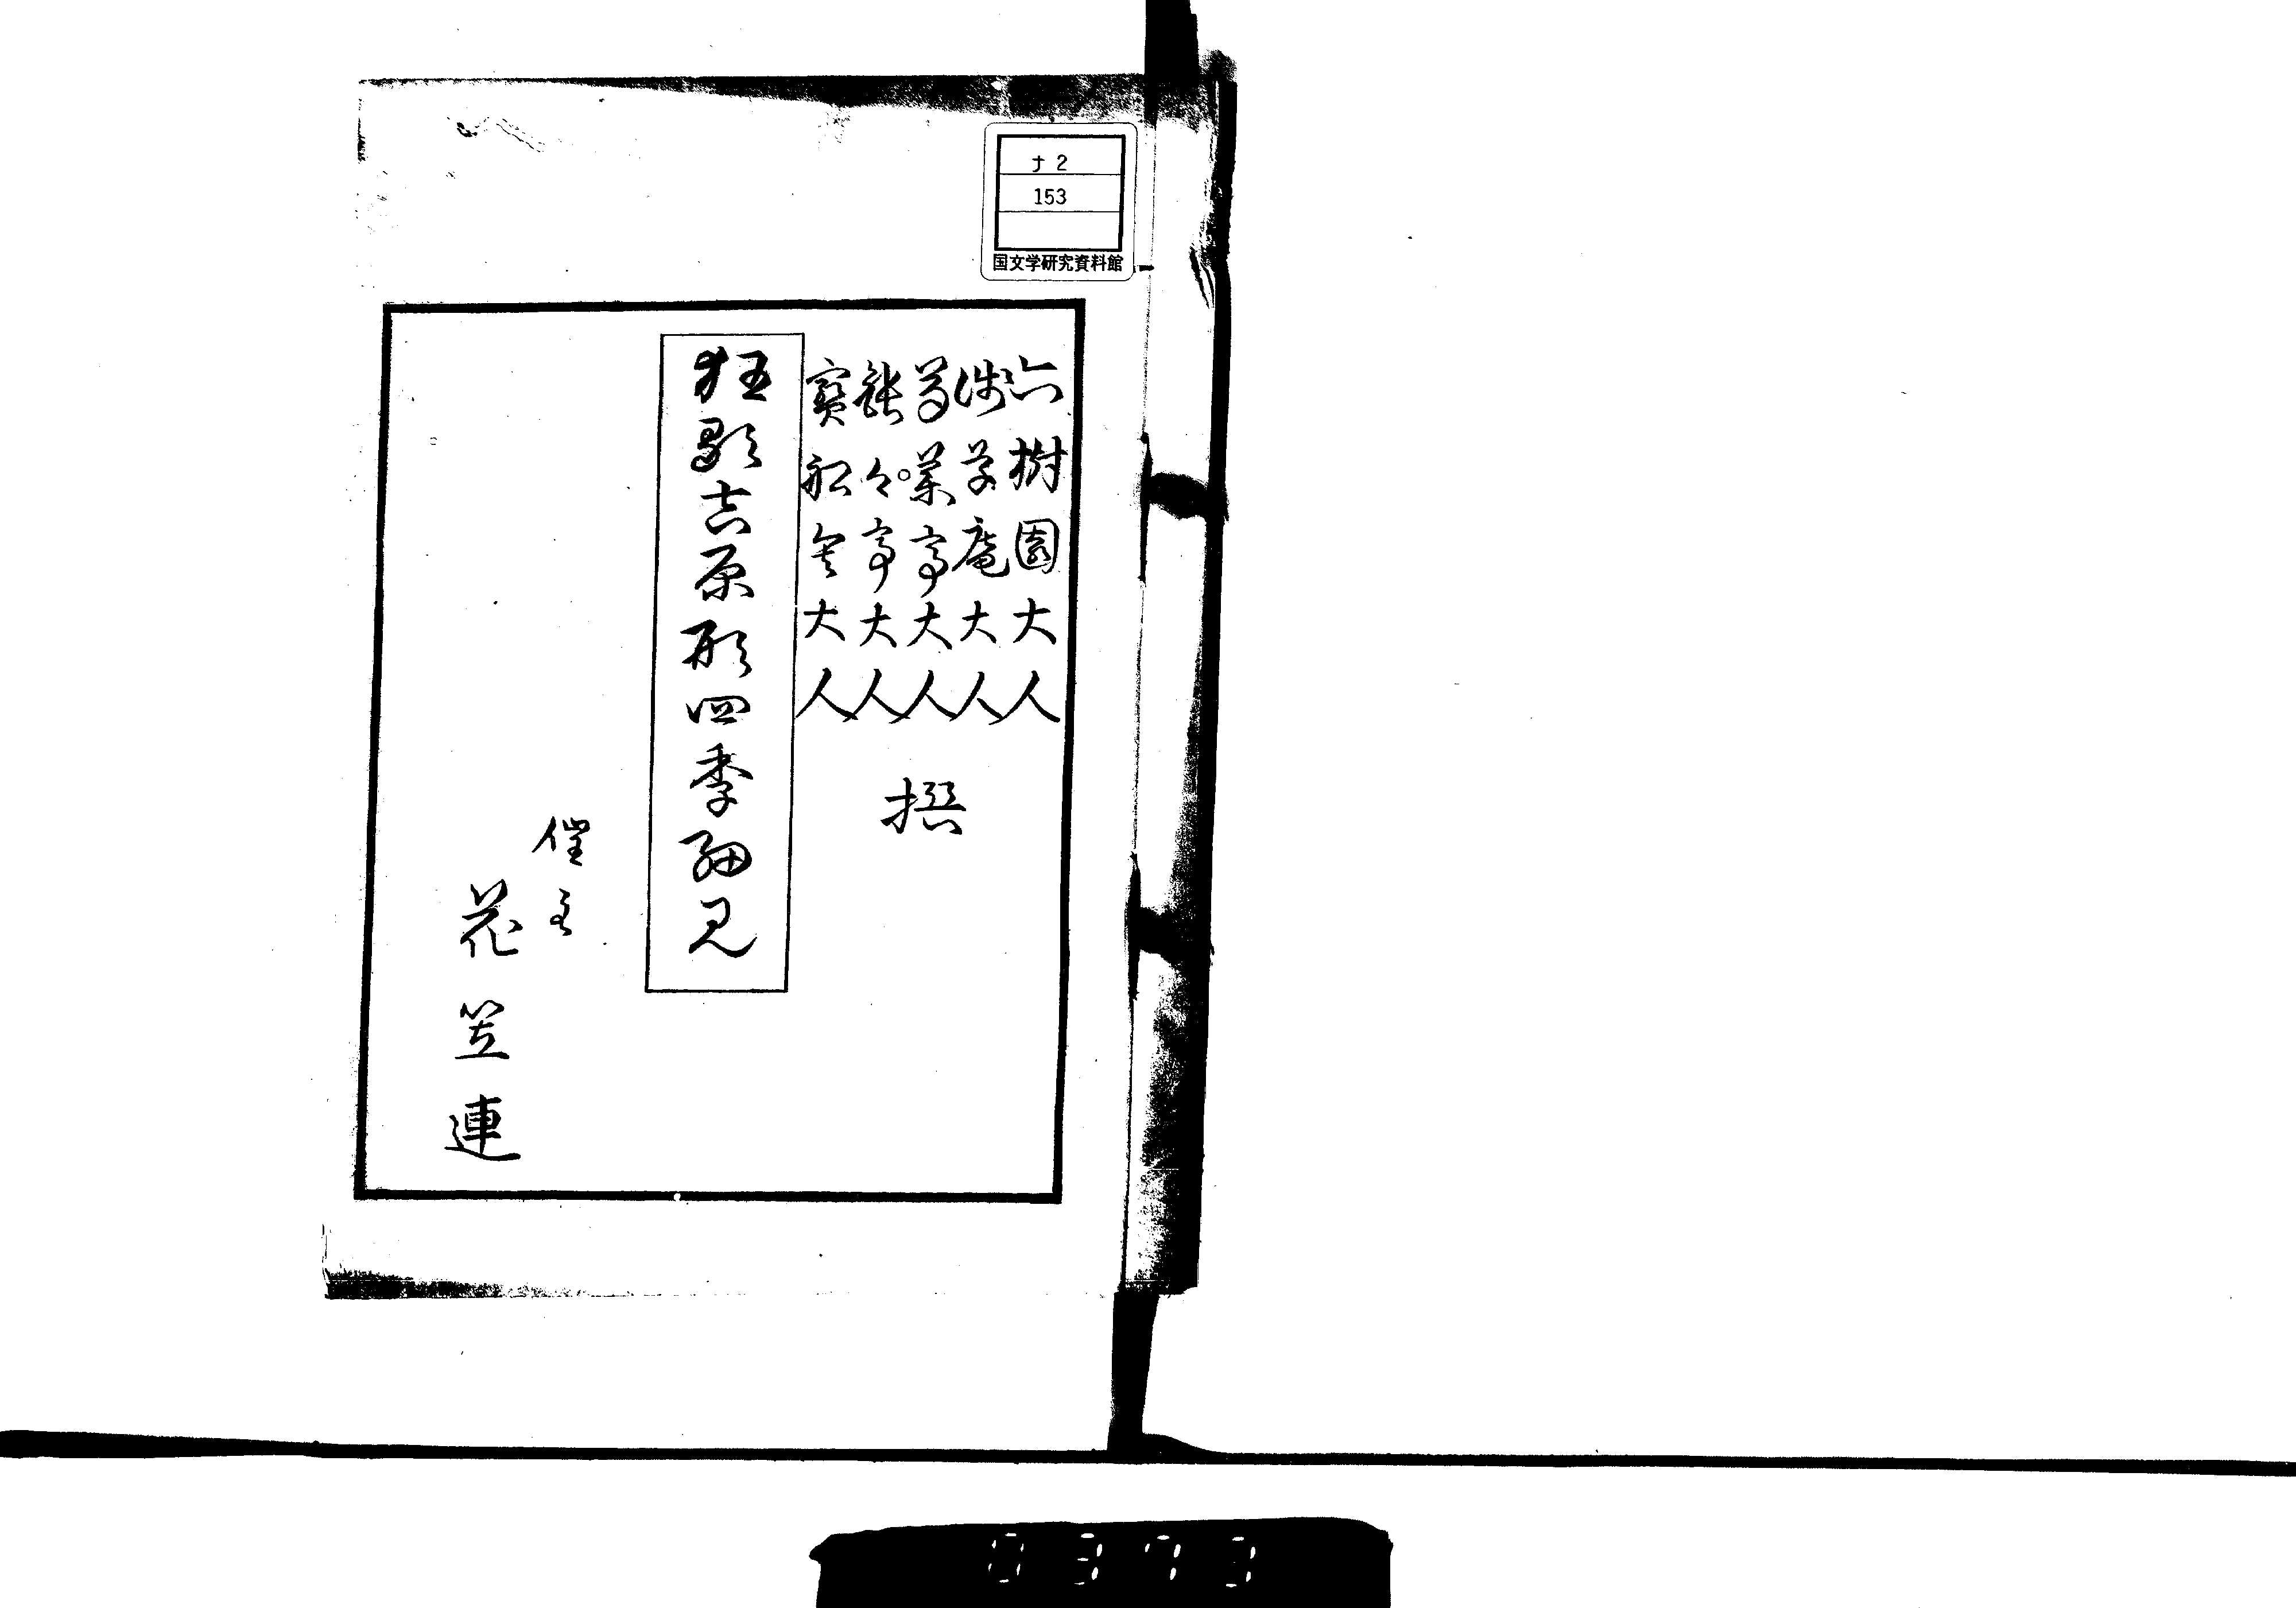 ナ2
153
国文学研究資料館
六樹園大人
浅草庵大人
芍薬亭大人
々亭大人
寳船舎大人
撰
狂歌吉原形四季細見
催主
花笠連
0373